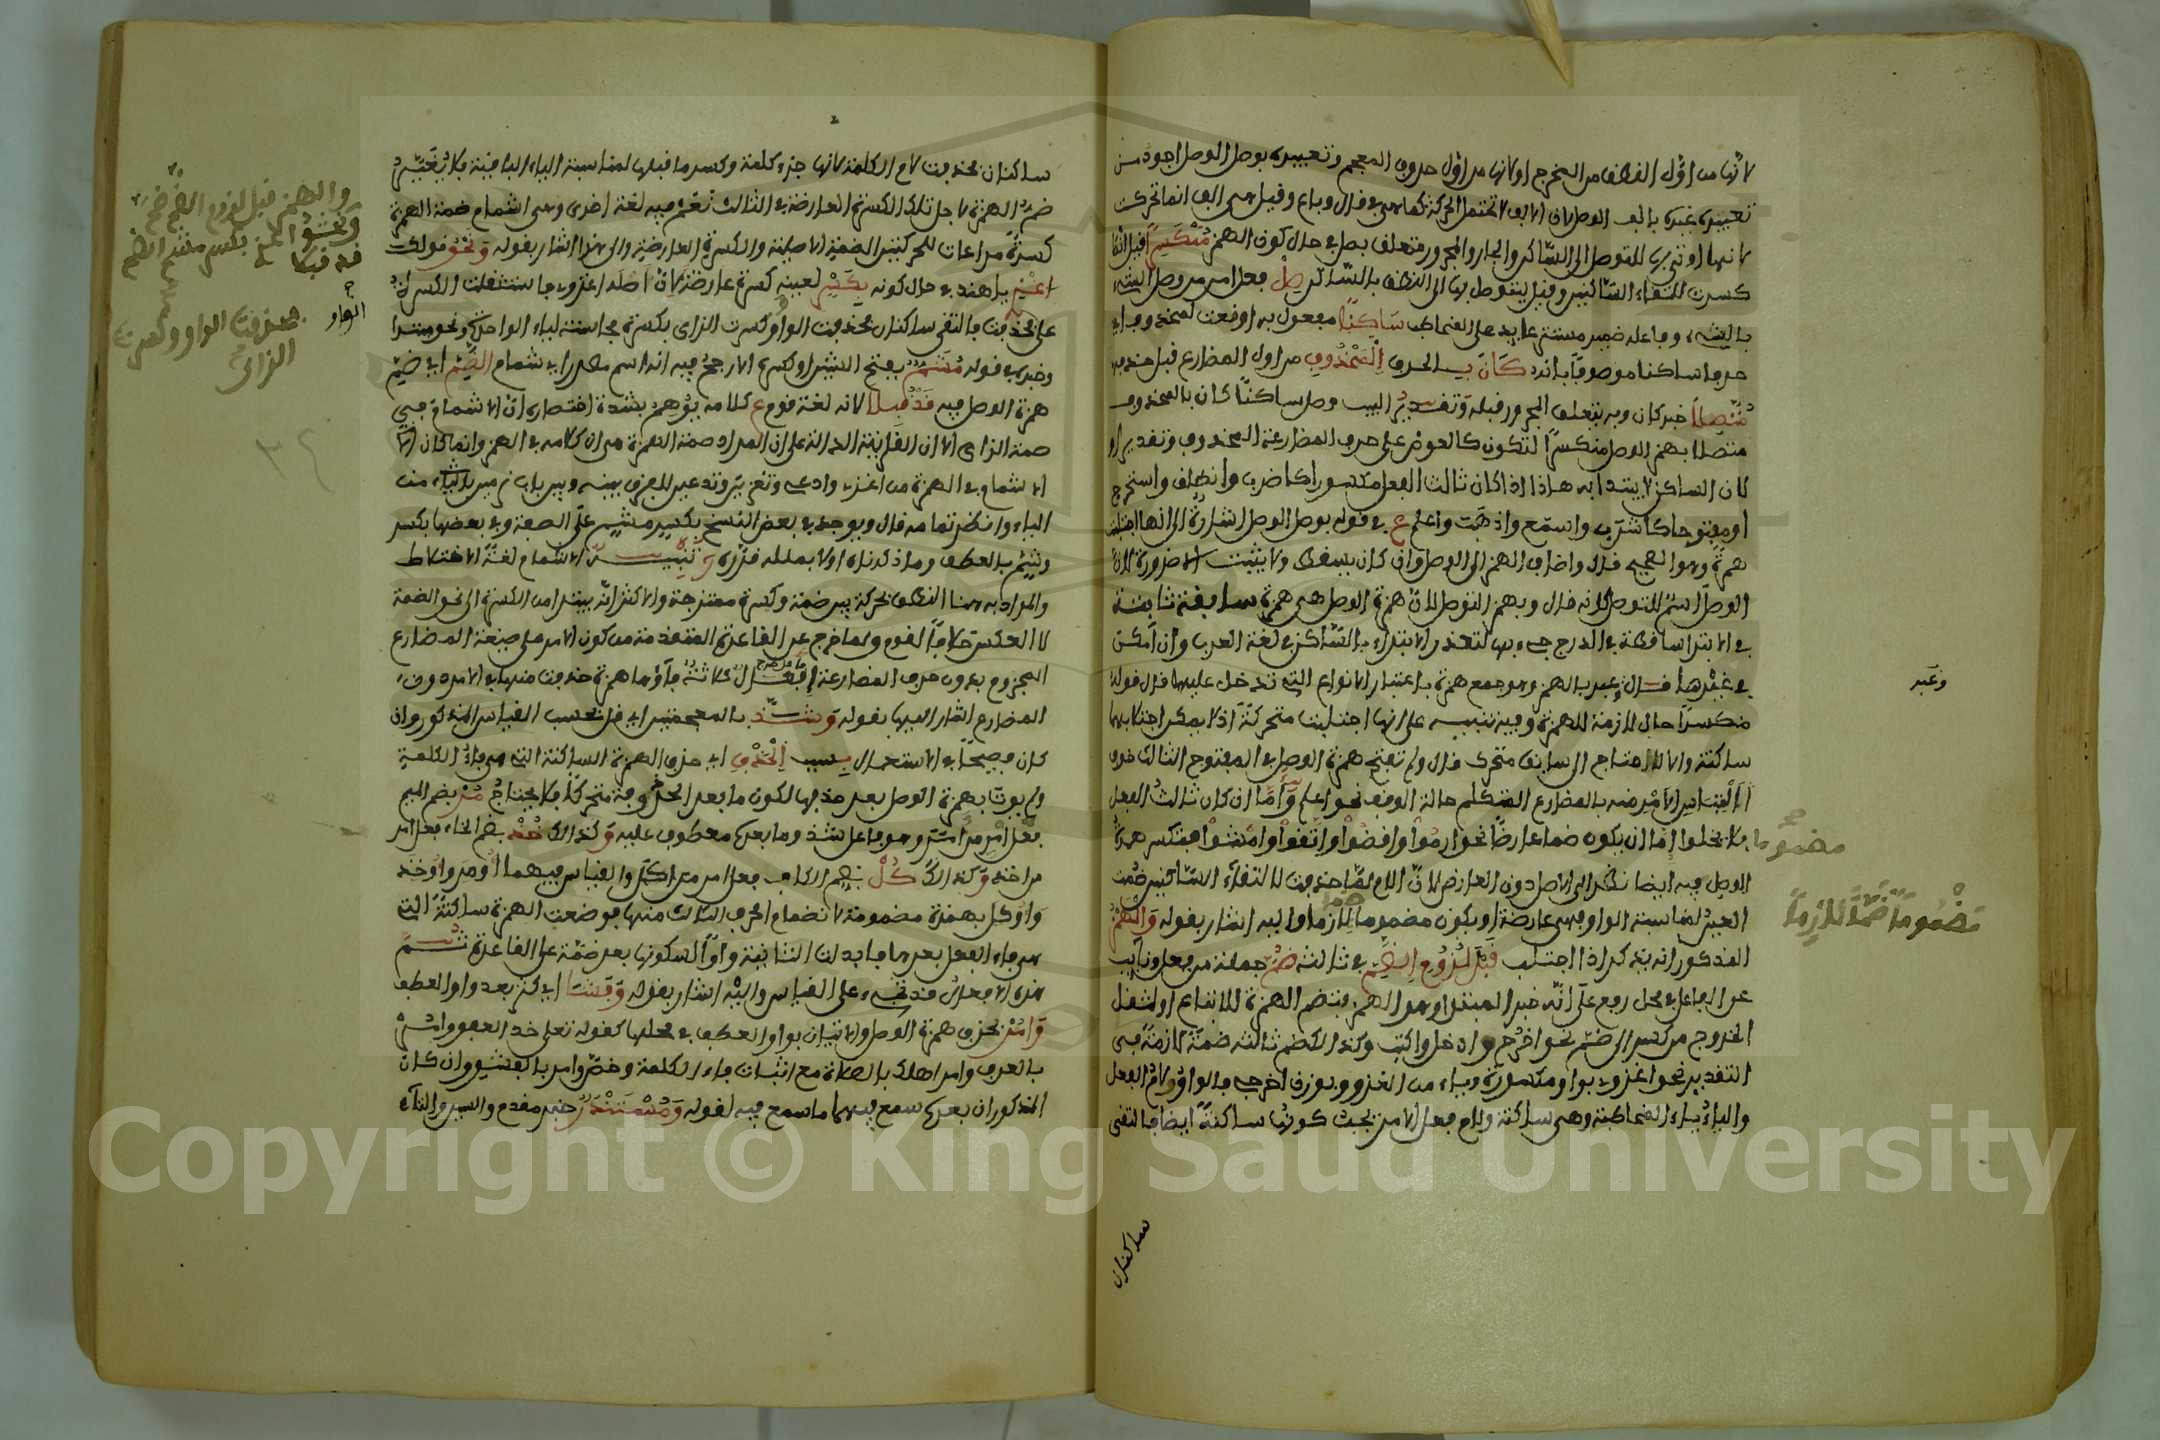 لانها من اول النطق من المخرج او لانها من اول حروف المعجم وتعبيره بوصل الوصل اجود من
تعبيره غيره بالف الوصل لان الالف لا تحتمل الحركة كما هي في قال وباع وقيل هي الف انما تحركت
لانها اوتي بها للتوصل الى الساكن والجار والمجرور متعلق بصل في حال كون الهمز مُنْكَسِراً قيل انما
كسرت لالتقاء الساكنين وقيل ليتوصل بها الى النطق بالساكن صِلْ فعل امر من وصل الشيء
بالشيء وفاعله ضمير مستتر عايد على المخاطب سَاكِنًا مفعول به اوقعت لمحذوف اي
حرفا ساكنا موصوفا بانه كَانَ بـ الحرف الْمَحْذُوفِ من اول المضارع قبل حذفه
مُتَّصِلاً خبر كان وبه يتعلق المجرور قبله وتقدير البيت وصل ساكنًا كان بالمحذوف
متصلا بهمز الوصل منكسرًا لتكون كالعوض على حرف المضارعة المحذوف وتقدير او
لان الساكن لا يبتدا به هذا اذا كان ثالث الفعل مكسورا كاضرب وانطلق واستخرج
او مفتوحا كاشرب واسمع واذهب واعلم ع في قوله بوصل الوصل اشارة الى انها اجتلبت
همزة وهو الصحيح قال واضاف الهمز الى الوصل وان كان يسقط ولا يثبت الا ضرورة لان
الوصل اسم للتوصل كانه قال وبهمز التوصل لان همزة الوصل هي همزة سابقة ثابتة
في الابتدا ساقطة في الدرج جيء بها لتعذر الابتداء بالساكن في لغة العرب وان امكن
في غيرها قال وعبر بالهمز وهو جمع همزة باعتبار الانواع التي تدخل عليها قال قوله
منكسرًا حال لازمة للهمزة وفيه تنبيه على انها اجتلبت متحركة اذ لا يمكن اجتلابها
ساكنة والا للاحتاج الى سابق متحرك قال ولم تفتح همزة الوصل في المفتوح الثالث خوف
التباس الامر منه بالمضارع المتكلم حالة الوقف نحو اعلم وامّا ان كان ثالث الفعل
مضموما فلا يخلوا اما ان يكون ضما عارضًا نحو ارموا واقضوا واتقوا وامشوا فتكسر همزة
الوصل فيه ايضا نظرا الى الاصل دون العارض لان اللام لما حذفت لالتقاء الساكنين ضمت
العين لمناسبة الواو فهي عارضة او يكون مضموما لازما واليه اشار بقوله وَالْهَمْزُ
المذكور انه يذكر اذا اجتلب قَبْلَ لُزُومِ الضَّمِّ في ثالثه ضُمَّ جملة من فعل ونائب
عن الفاعل في محل رفع على انه خبر المبتدا وهو الهمز فتضم الهمزة للاتباع او لثقل
الخروج من كسر الى ضم نحو اخرج وادخل واكتب وكذا الكضم ثالثه ضمة لازمة في
التقدير نحو اغزو بواو مكسورة وياء من الغزو وبوزن اخرج فالواو لام الفعل
والياء ياء المخاطبة وهي ساكنة ولام فعل الامر بحيث كونها ساكنة ايضا فالتقى
وعبر
مضموما
مَضْمُوماً ضَمًّا لَازِماً
ساكنان
ساكنان فحذفت لام الكلمة لانها جزء كلمة وكسر ما قبلها لمناسبة الياء الباقية فلا يتغير
ضم الهمزة لاجل تلك الكسرة العارضة في الثالث نعم فيه لغة اخرى وهي اشمام ضمة الهمزة
كسرة مراعات للحركتين الضمية الاصلية والكسرة العارضية والى هذا اشار بقوله وَنَحْوُ قولك
اغْزِي يا هند في حال كونه بِكَسْرِ لعينه كسرة عارضة لان اصله اغزوي فاستثقلت الكسرة
على الواو فحذفت فالتقى ساكنان فحذفت الواو وكسرت الزاي بكسرة مجانسة لياء الواحدة ونحو مبتدا
وخبره في قوله مُشَمُّ بفتح الشين او كسره الارجح فيه انه اسم مصدر اي اشمام الضَّمِّ اي ضم
همزة الوصل فيه قَدْ قُبِلَا لانه لغة قوم ع كلامه يوهم بشدة اختصاره ان الاشمام في
ضمة الزاى الا ان القرينة الدالة على ان المراد ضمة الهمزة هي ان كلامه في الهمز وانما كان
الاشمام في الهمزة من اغزي وادعي وتغزين وتدعين للفرق بينه وبين باب ترمين بالياء من
الياء وانظر تمامه قال ويوجد في بعض النسخ بكسر مشم على الصفة وفي بعضها بكسر
وشم بالعطف وما ذكرناه اولا بمثله قرره وَ تنبيـه الاشمام لغة الاختلاط
والمراد به هنا النطق بحركة بين ضمة وكسرة ممتزجة والاكثر انه يبتدا من الكسرة الى نحو الضمة
لا العكس خلافا لقوم ولما خرج عن القاعدة المتقدمة من كون الامر على صيغة المضارع
المجزوم بدون حرف المضارعة افعال ثلاثة فاؤها همزة حذفت منها في الامر دون
المضارع اشار اليها بقوله وَشَذَّ بالمعجمتين اي قل بحسب القياس المذكور وان
كان فصيحا في الاستعمال بـسبب الْحَذْفِ اي حذف الهمزة الساكنة التي هي فاء الكلمة
ولم يوتا بهمزة الوصل بعد حذفها لكون ما بعد المحذوفة متحركا فلا يحتاج مُرْ بضم الميم
فعل امر من امر وهو فاعل شذ وما بعده معطوف عليه وَكذلك خُذْ بضم الخاء فعل امر
من اخذ وَكذلك كُلْ بضم الكاف فعل امر من اكل والقياس فيهما اومر واوخذ
واوكل بهمزة مضمومة لانضمام الحرف الثالث منها فوضعت الهمزة ساكنة التي
هي فاء الفعل بعدها فابدلت الثانية واوا لسكونها بعد ضمة على القاعدة ثـم
هذه الافعال قد تجيء على القياس واليه اشار بقوله وَفَشَا اي كثر بعد واو العطف
وَامُرْ بحذف همزة الوصل والاتيان بواو العطف في محلها كقوله تعلى خذ العفو وامر
بالعرف وامر اهلك بالصلاة مع اثبات فاء الكلمة وخص وامر بالفشو وان كان
المذكوران بعده سمع فيهما ما سمع فيه لقوله وَمُسْتَنْدَرٌ خبر مقدم والسين والتاء
والهمز قبل لزوم الضم ضم
ونحو اغزي بكسر مشم الضم
قد قبلا
الواو
حذفت الواو وكسرت
الزاى